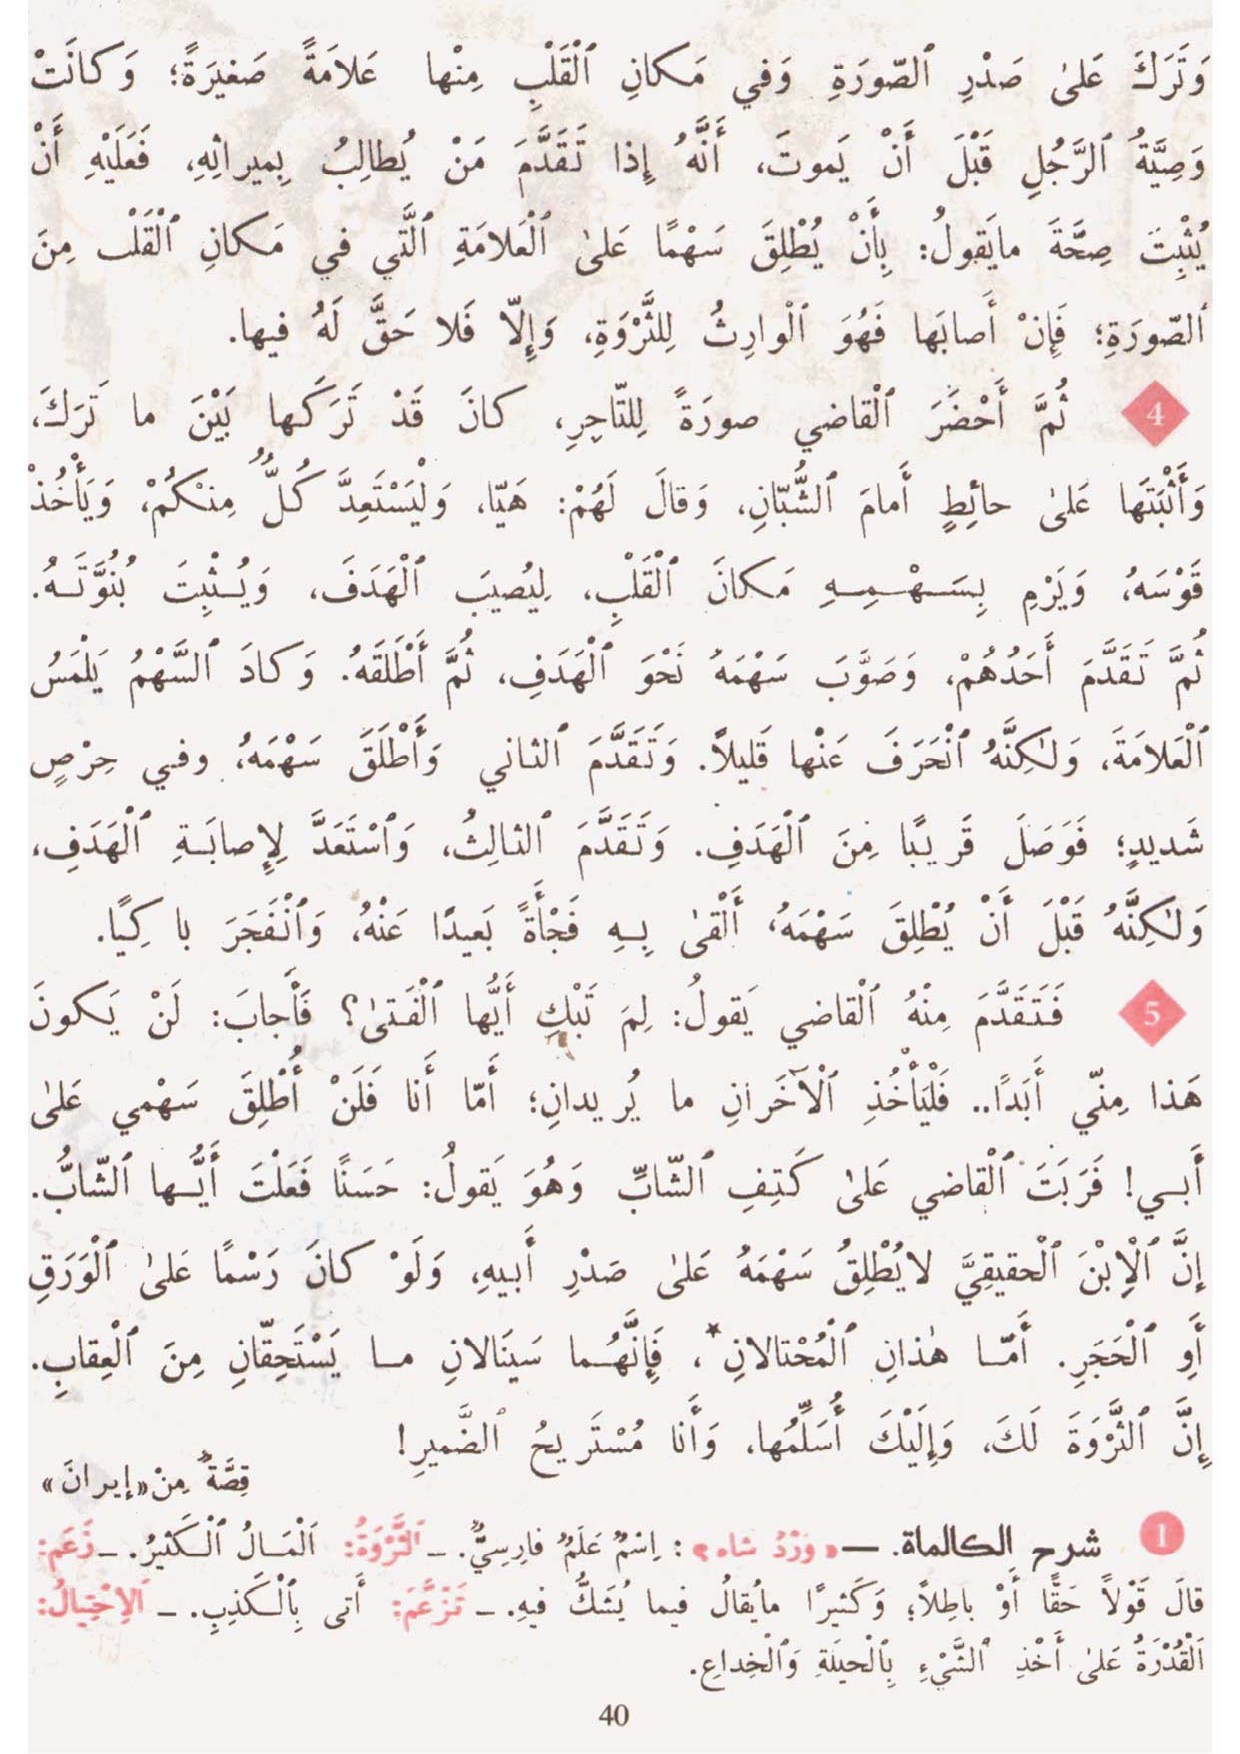 وَتَرَكَ عَلىٰ صَدْرِ ٱلصّورَةِ وَفي مَكانِ ٱلْقَلْبِ مِنْها عَلامَةً صَغيرَةً؛ وَكانَتْ
وَصِيَّةُ ٱلرَّجُلِ قَبْلَ أَنْ يَموتَ، أَنَّهُ إِذا تَقَدَّمَ مَنْ يُطالِبُ بِميراثِهِ، فَعَلَيْهِ أَنْ
يُثْبِتَ صِحَّةَ مايَقولُ: بِأَنْ يُطْلِقَ سَهْمًا عَلىٰ ٱلْعَلامَةِ ٱلَّتي في مَكانِ ٱلْقَلْب مِنَ
ٱلصّورَةِ؛ فَإِنْ أَصابَها فَهُوَ ٱلْوارِثُ لِلثَّرْوَةِ، وَإِلّا فَلا حَقَّ لَهُ فيها.
4 ثُمَّ أَحْضَرَ ٱلْقاضي صورَةً لِلتّاجِرِ، كانَ قَدْ تَرَكَها بَيْنَ ما تَرَكَ،
وَأَثْبَتَها عَلىٰ حائِطٍ أَمامَ ٱلشُّبّانِ، وَقالَ لَهُمْ: هَيّا، وَلْيَسْتَعِدَّ كُلٌّ مِنْكُمْ، وَيَأْخُذْ
قَوْسَهُ، وَيَرْمِ بِسَهْمِهِ مَكانَ ٱلْقَلْبِ، لِيُصيَب ٱلْهَدَفَ، وَيُثْبِتَ بُنُوَّتَهُ.
ثُمَّ تَقَدَّمَ أَحَدُهُمْ، وَصَوَّبَ سَهْمَهُ نَحْوَ ٱلْهَدَفِ، ثُمَّ أَطْلَقَهُ. وَكادَ ٱلسَّهْمُ يَلْمَسُ
ٱلْعَلامَةَ، وَلٰكِنَّهُ ٱنْحَرَفَ عَنْها قَليلاً. وَتَقَدَّمَ ٱلثاني وَأَطْلَقَ سَهْمَهُ، وفي حِرْصٍ
شَديدٍ؛ فَوَصَلَ قَريبًا مِنَ ٱلْهَدَفِ. وَتَقَدَّمَ ٱلثالِثُ، وَٱسْتَعَدَّ لِإِصابَةِ ٱلْهَدَفِ،
وَلٰكِنَّهُ قَبْلَ أَنْ يُطْلِقَ سَهْمَهُ، أَلْقىٰ بِهِ فَجْأَةً بَعيدًا عَنْهُ، وَٱنْفَجَرَ باكِيًا.
5 فَتَقَدَّمَ مِنْهُ ٱلْقاضي يَقولُ: لِمَ تَبْكِ أَيُّها ٱلْفَتىٰ؟ فَأَجابَ: لَنْ يَكونَ
هَذا مِنّي أَبَدًا.. فَلْيَأْخُذِ ٱلْآخَرانِ ما يُريدانِ؛ أَمّا أَنا فَلَنْ أُطْلِقَ سَهْمي عَلىٰ
أَبي! فَرَبَتَ ٱلْقاضي عَلىٰ كَتِفِ ٱلشّابِّ وَهُوَ يَقولُ: حَسَنًا فَعَلْتَ أَيُّها ٱلشّابُّ.
إِنَّ ٱلْإِبْنَ ٱلْحَقيقِيَّ لايُطْلِقُ سَهْمَهُ عَلىٰ صَدْرِ أَبيهِ، وَلَوْ كانَ رَسْمًا عَلىٰ ٱلْوَرَقِ
أَوِ ٱلْحَجَرِ. أَمّا هٰذانِ ٱلْمُحْتالانِ*، فَإِنَّهُما سَيَنالانِ ما يَسْتَحِقّانِ مِنَ ٱلْعِقابِ.
إِنَّ ٱلثَّرْوَةَ لَكَ، وَإِلَيْكَ أُسَلِّمُها، وَأَنا مُسْتَريحُ ٱلضَّميرِ!
قِصَّةٌ مِنْ «إيرانَ»
1 شرح الكالماة. — «وَرْدُ شاه»: اِسْمٌ عَلَمٌ فارِسِيٌّ. – اَلثَّرْوَةُ: اَلْمَالُ ٱلْكَثيرُ. – زَعَم:
قالَ قَوْلاً حَقًّا أَوْ باطِلاً؛ وَكَثيرًا مايُقالُ فيما يُشَكُّ فيهِ. – تَزَعَّمَ: أَتى بِٱلْكَذِبِ. – اَلاِحْتِيالُ:
اَلْقُدْرَةُ عَلىٰ أَخْذِ ٱلشَّيْءِ بِٱلْحيلَةِ وَٱلْخِداعِ.
40